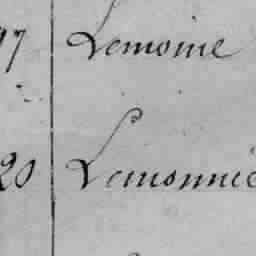 97 Lemoine
20 Lemonnie